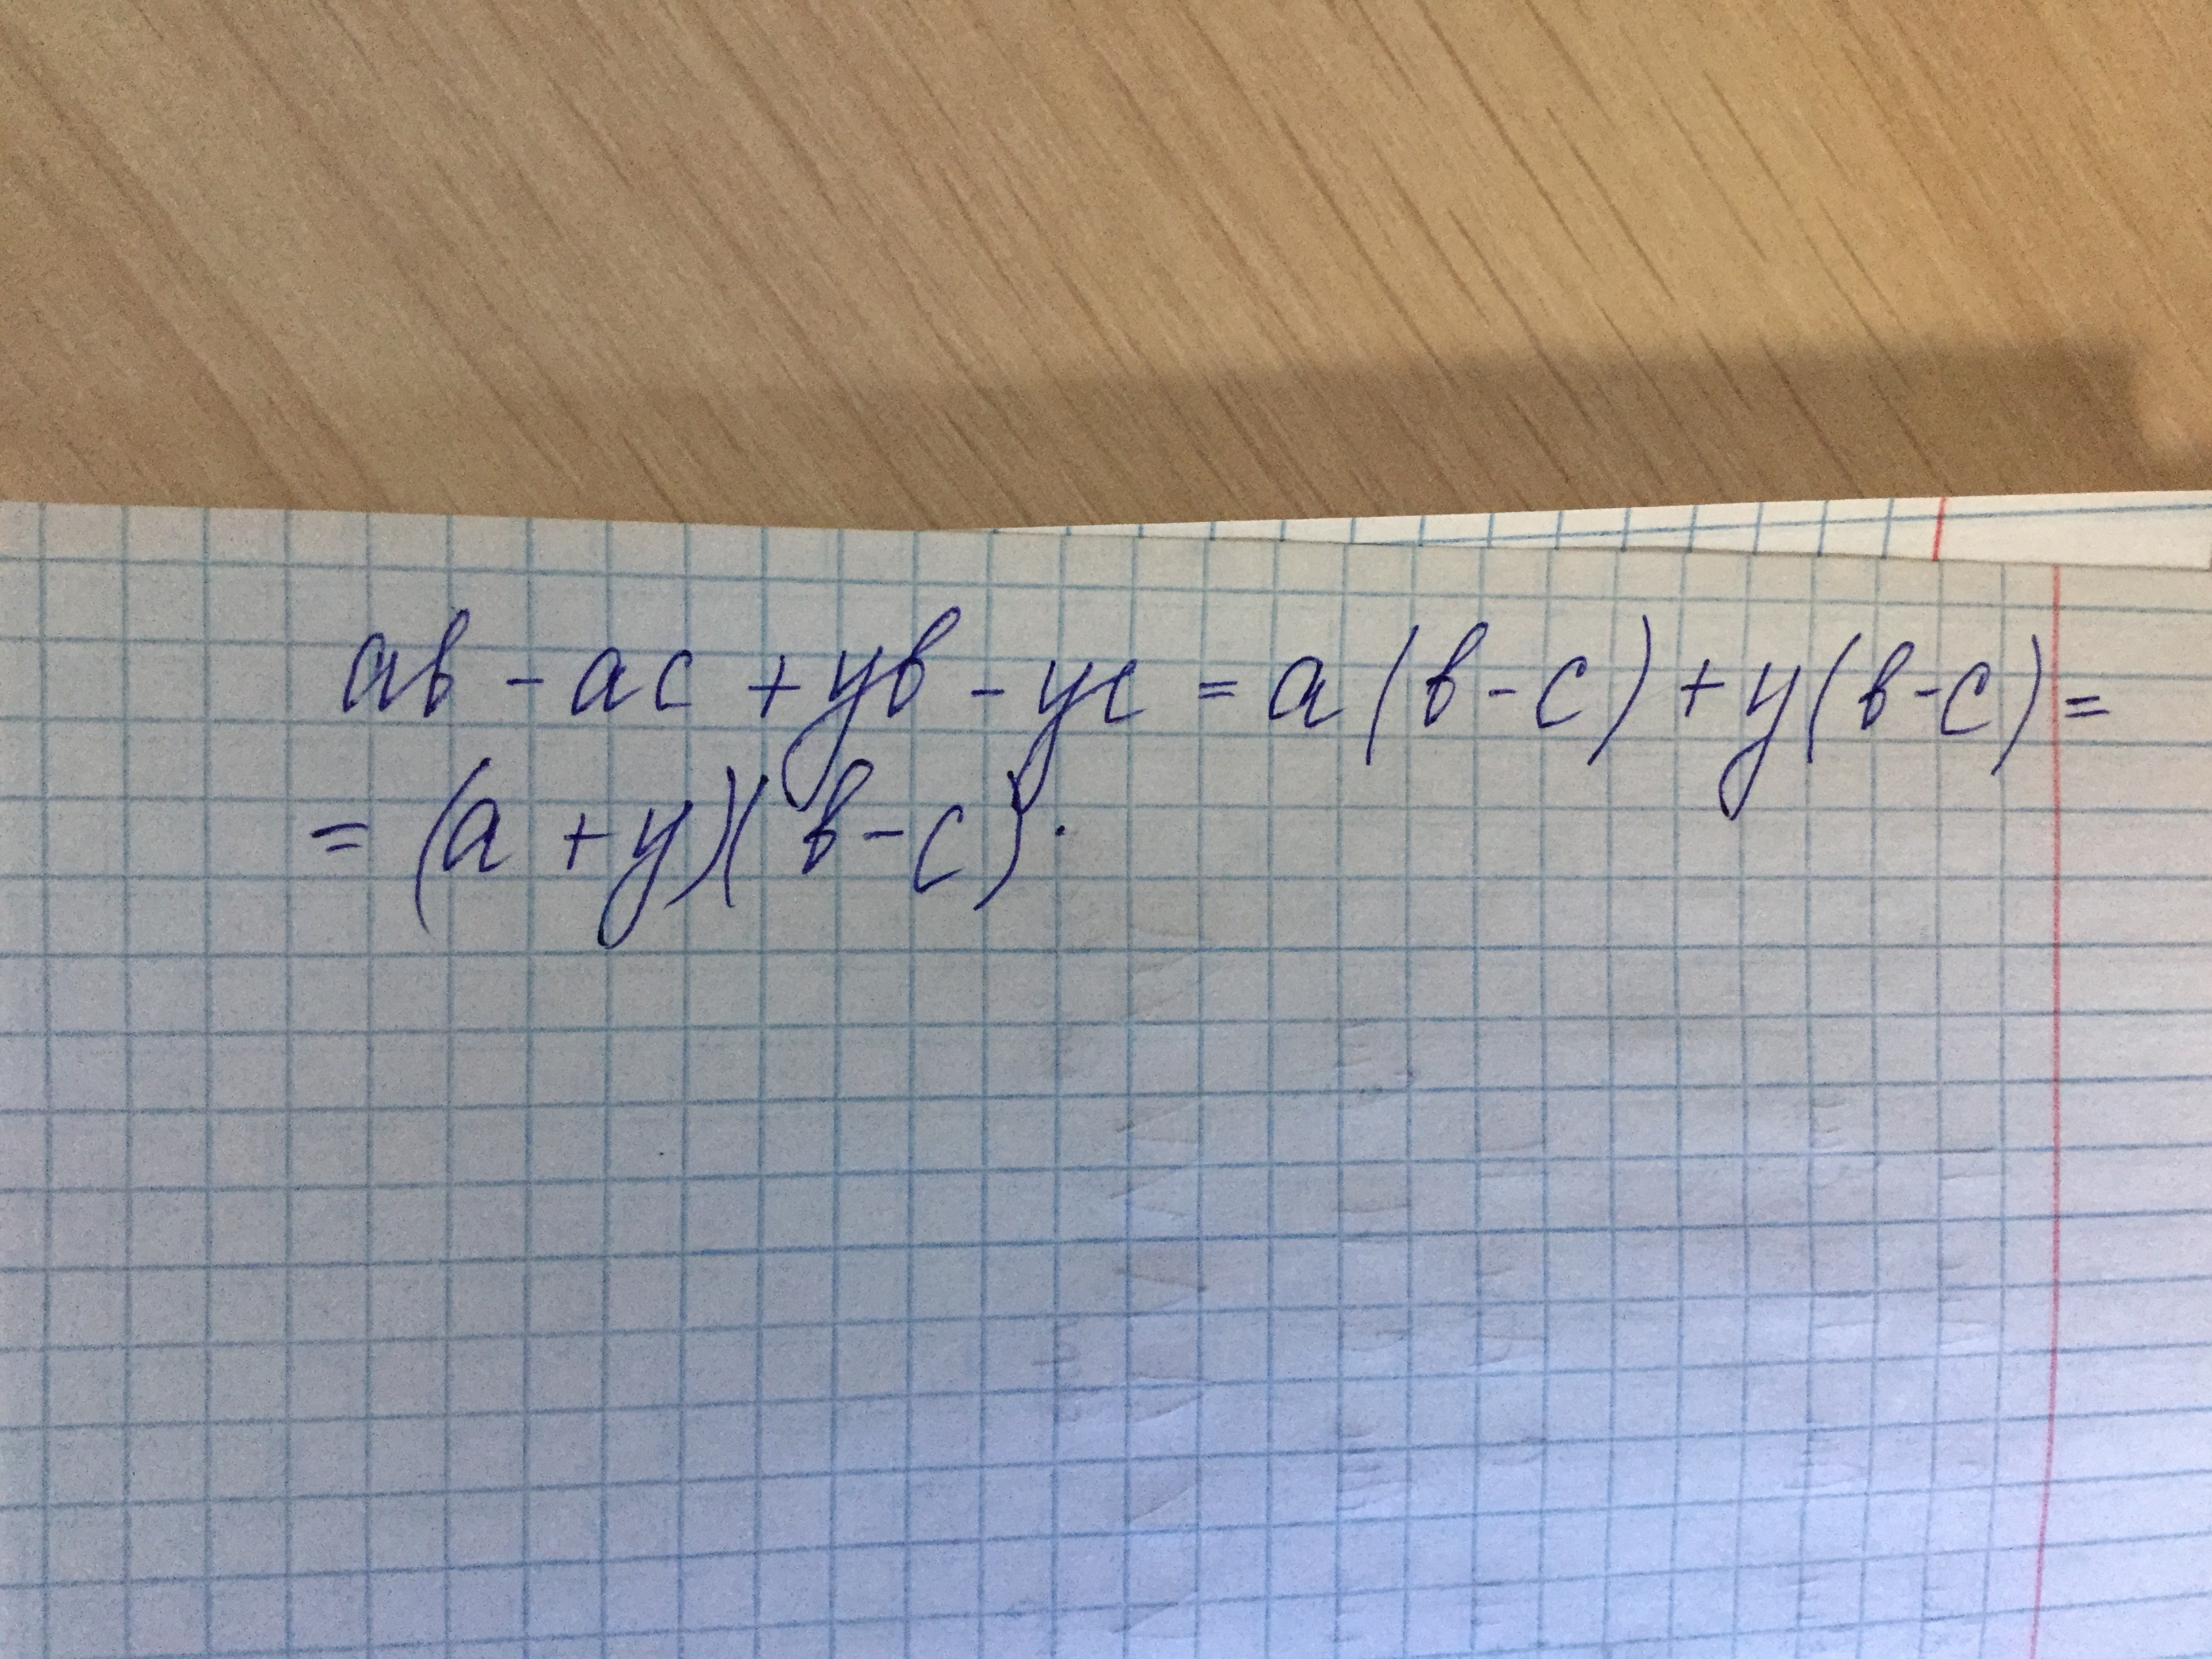 ab - ac + yb - yc = a(b-c) + y(b-c) =
= (a + y)(b-c).